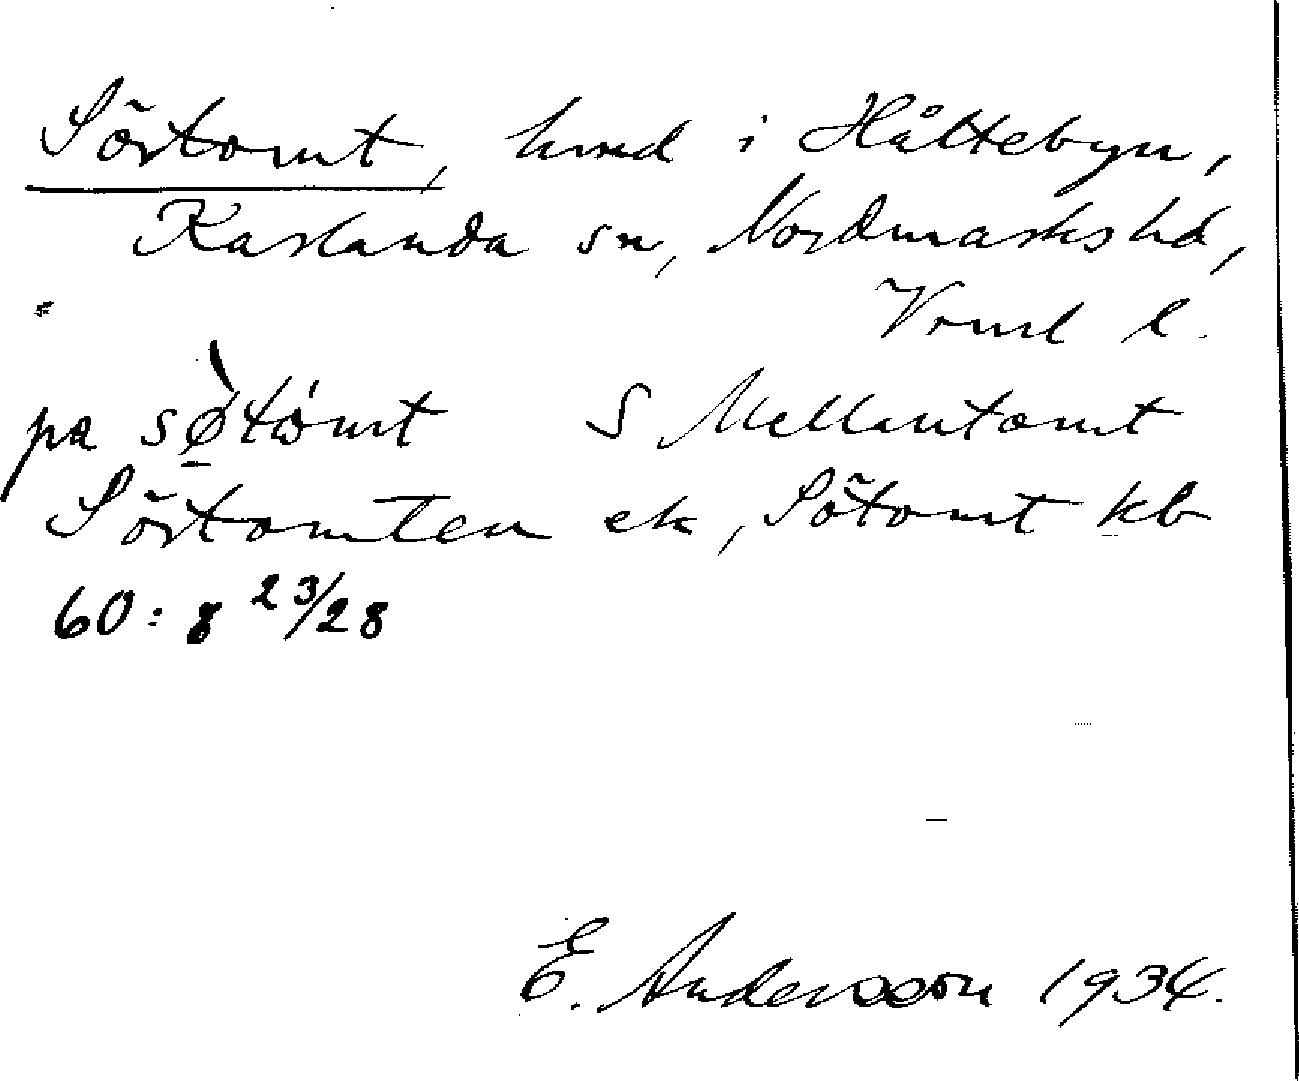 Sörtomt, hmd i Håltebyn,
Karlanda sn, Nordmarks hd,
Vrml l.
pa sø̀tòmt S Mellantomt
Sörtomten ek, Sötomt kb
60:8 23/28
E. Andersson 1934.